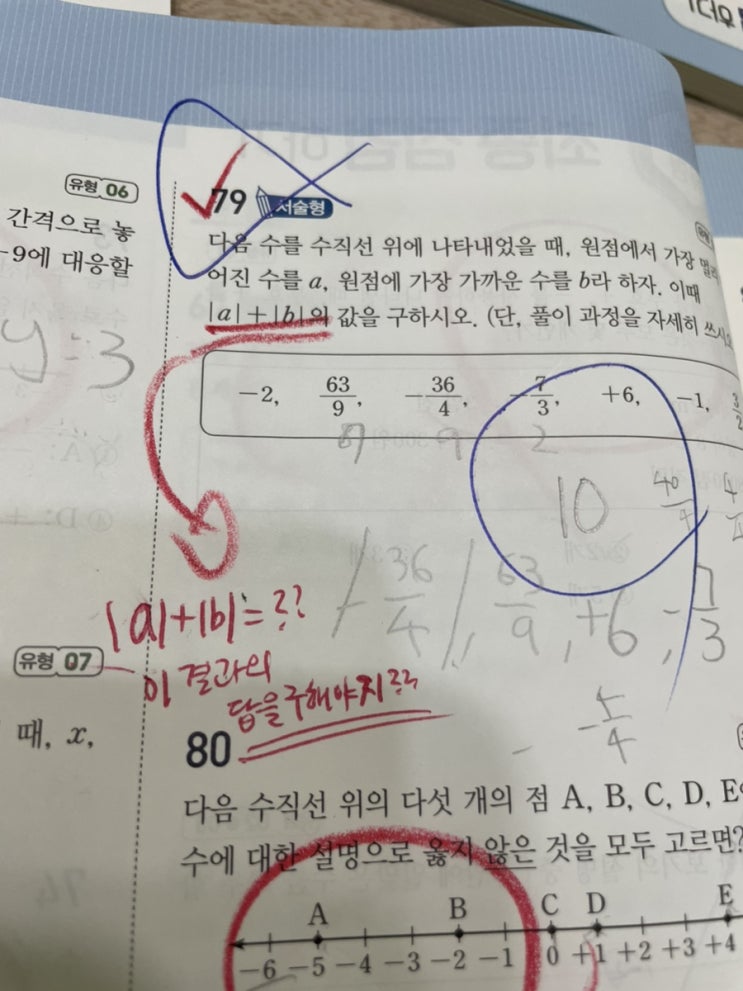 유형 06
간격으로 놓
-9에 대응할
y=3
유형 07
때, x,
79 서술형
다음 수를 수직선 위에 나타내었을 때, 원점에서 가장
어진 수를 a, 원점에 가장 가까운 수를 b라 하자. 이때
|a|+|b|의 값을 구하시오. (단, 풀이 과정을 자세히
-2, 63/9, -36/4, -7/3, +6, -1,
9 2
10 40/4
-36/4, 63/9, +6, -7/3
|a|+|b|=??
이 결과의
답을 구해야지??
80
다음 수직선 위의 다섯 개의 점 A, B, C, D, E
수에 대한 설명으로 옳지 않은 것을 모두 고르면?
A B C D E
-6 -5 -4 -3 -2 -1 0 +1 +2 +3 +4